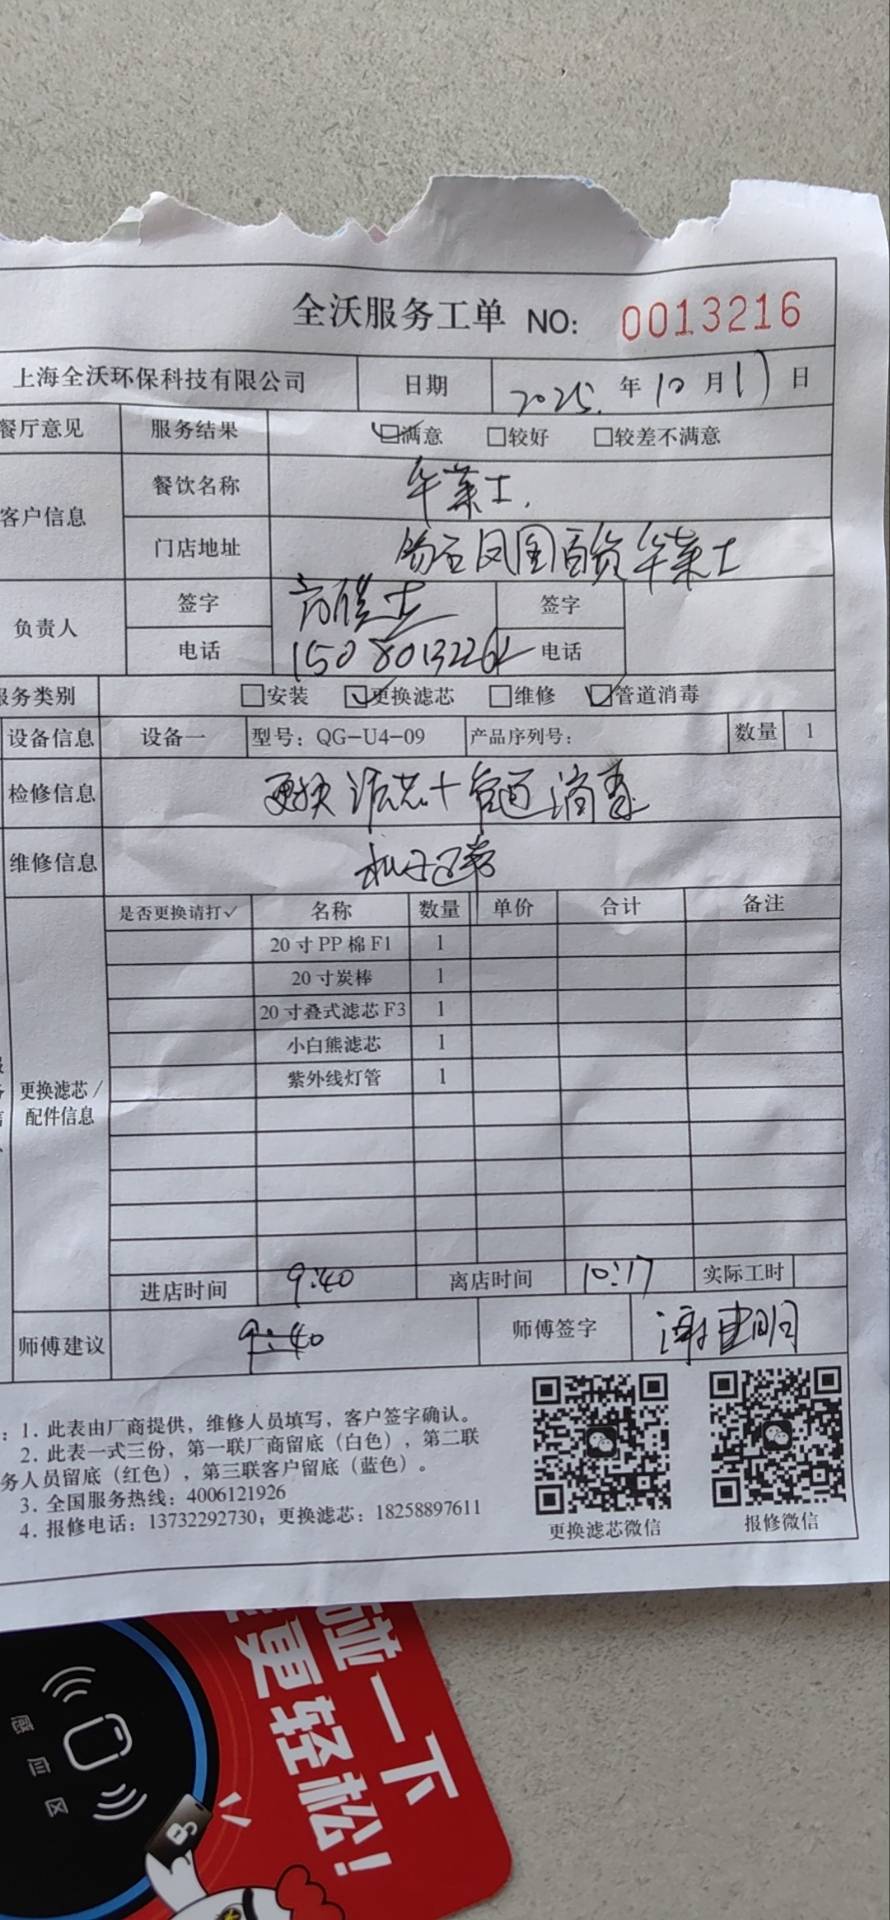 全沃服务工单 NO: 0013216
上海全沃环保科技有限公司 日期 2025. 年 10 月 17 日
餐厅意见 服务结果 ☑满意 □较好 □较差不满意
客户信息 餐饮名称 华莱士.
门店地址 凤凰百货华莱士
负责人 签字 签字
电话 电话
服务类别 □安装 ☑更换滤芯 □维修 ☑管道消毒
设备信息 设备一 型号：QG-U4-09 产品序列号： 数量 1
检修信息 更换滤芯+管道消毒
维修信息 机子正常
是否更换请打✓ 名称 数量 单价 合计 备注
20寸PP棉F1 1
20寸炭棒 1
20寸叠式滤芯F3 1
小白熊滤芯 1
紫外线灯管 1
更换滤芯/
配件信息
进店时间 9:40 离店时间 10:17 实际工时
师傅建议 9:40 师傅签字 谢建明
：1. 此表由厂商提供，维修人员填写，客户签字确认。
2. 此表一式三份，第一联厂商留底（白色），第二联
务人员留底（红色），第三联客户留底（蓝色）。
3. 全国服务热线：4006121926
4. 报修电话：13732292730；更换滤芯：18258897611
更换滤芯微信 报修微信
碰一下
更轻松!
感应区